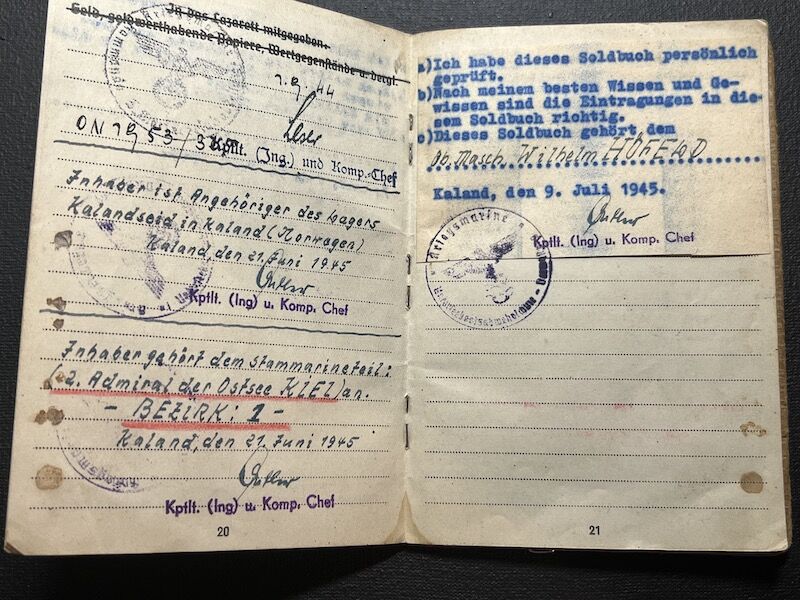 In das Lazarett mitgegeben.
Geld, geldwerthabende Papiere, Wertgegenstände u. dergl.
7.9.44
Kptlt. (Ing.) und Komp.-Chef
Inhaber ist Angehöriger des Lagers
Kalandseid in Kaland (Norwegen)
Kaland, den 21. Juni 1945
Kptlt. (Ing) u. Komp. Chef
Inhaber gehört dem Stammarineteil:
(2. Admiral der Ostsee KIEL) an.
- BEZIRK: 1 -
Kaland, den 21. Juni 1945
Kptlt. (Ing) u. Komp. Chef
20
a) Ich habe dieses Soldbuch persönlich
geprüft.
b) Nach meinem besten Wissen und Ge-
wissen sind die Eintragungen in die-
sem Soldbuch richtig.
c) Dieses Soldbuch gehört dem
Ob. Masch. Wilhelm
Kaland, den 9. Juli 1945.
Kptlt. (Ing) u. Komp. Chef
Kriegsmarine
21